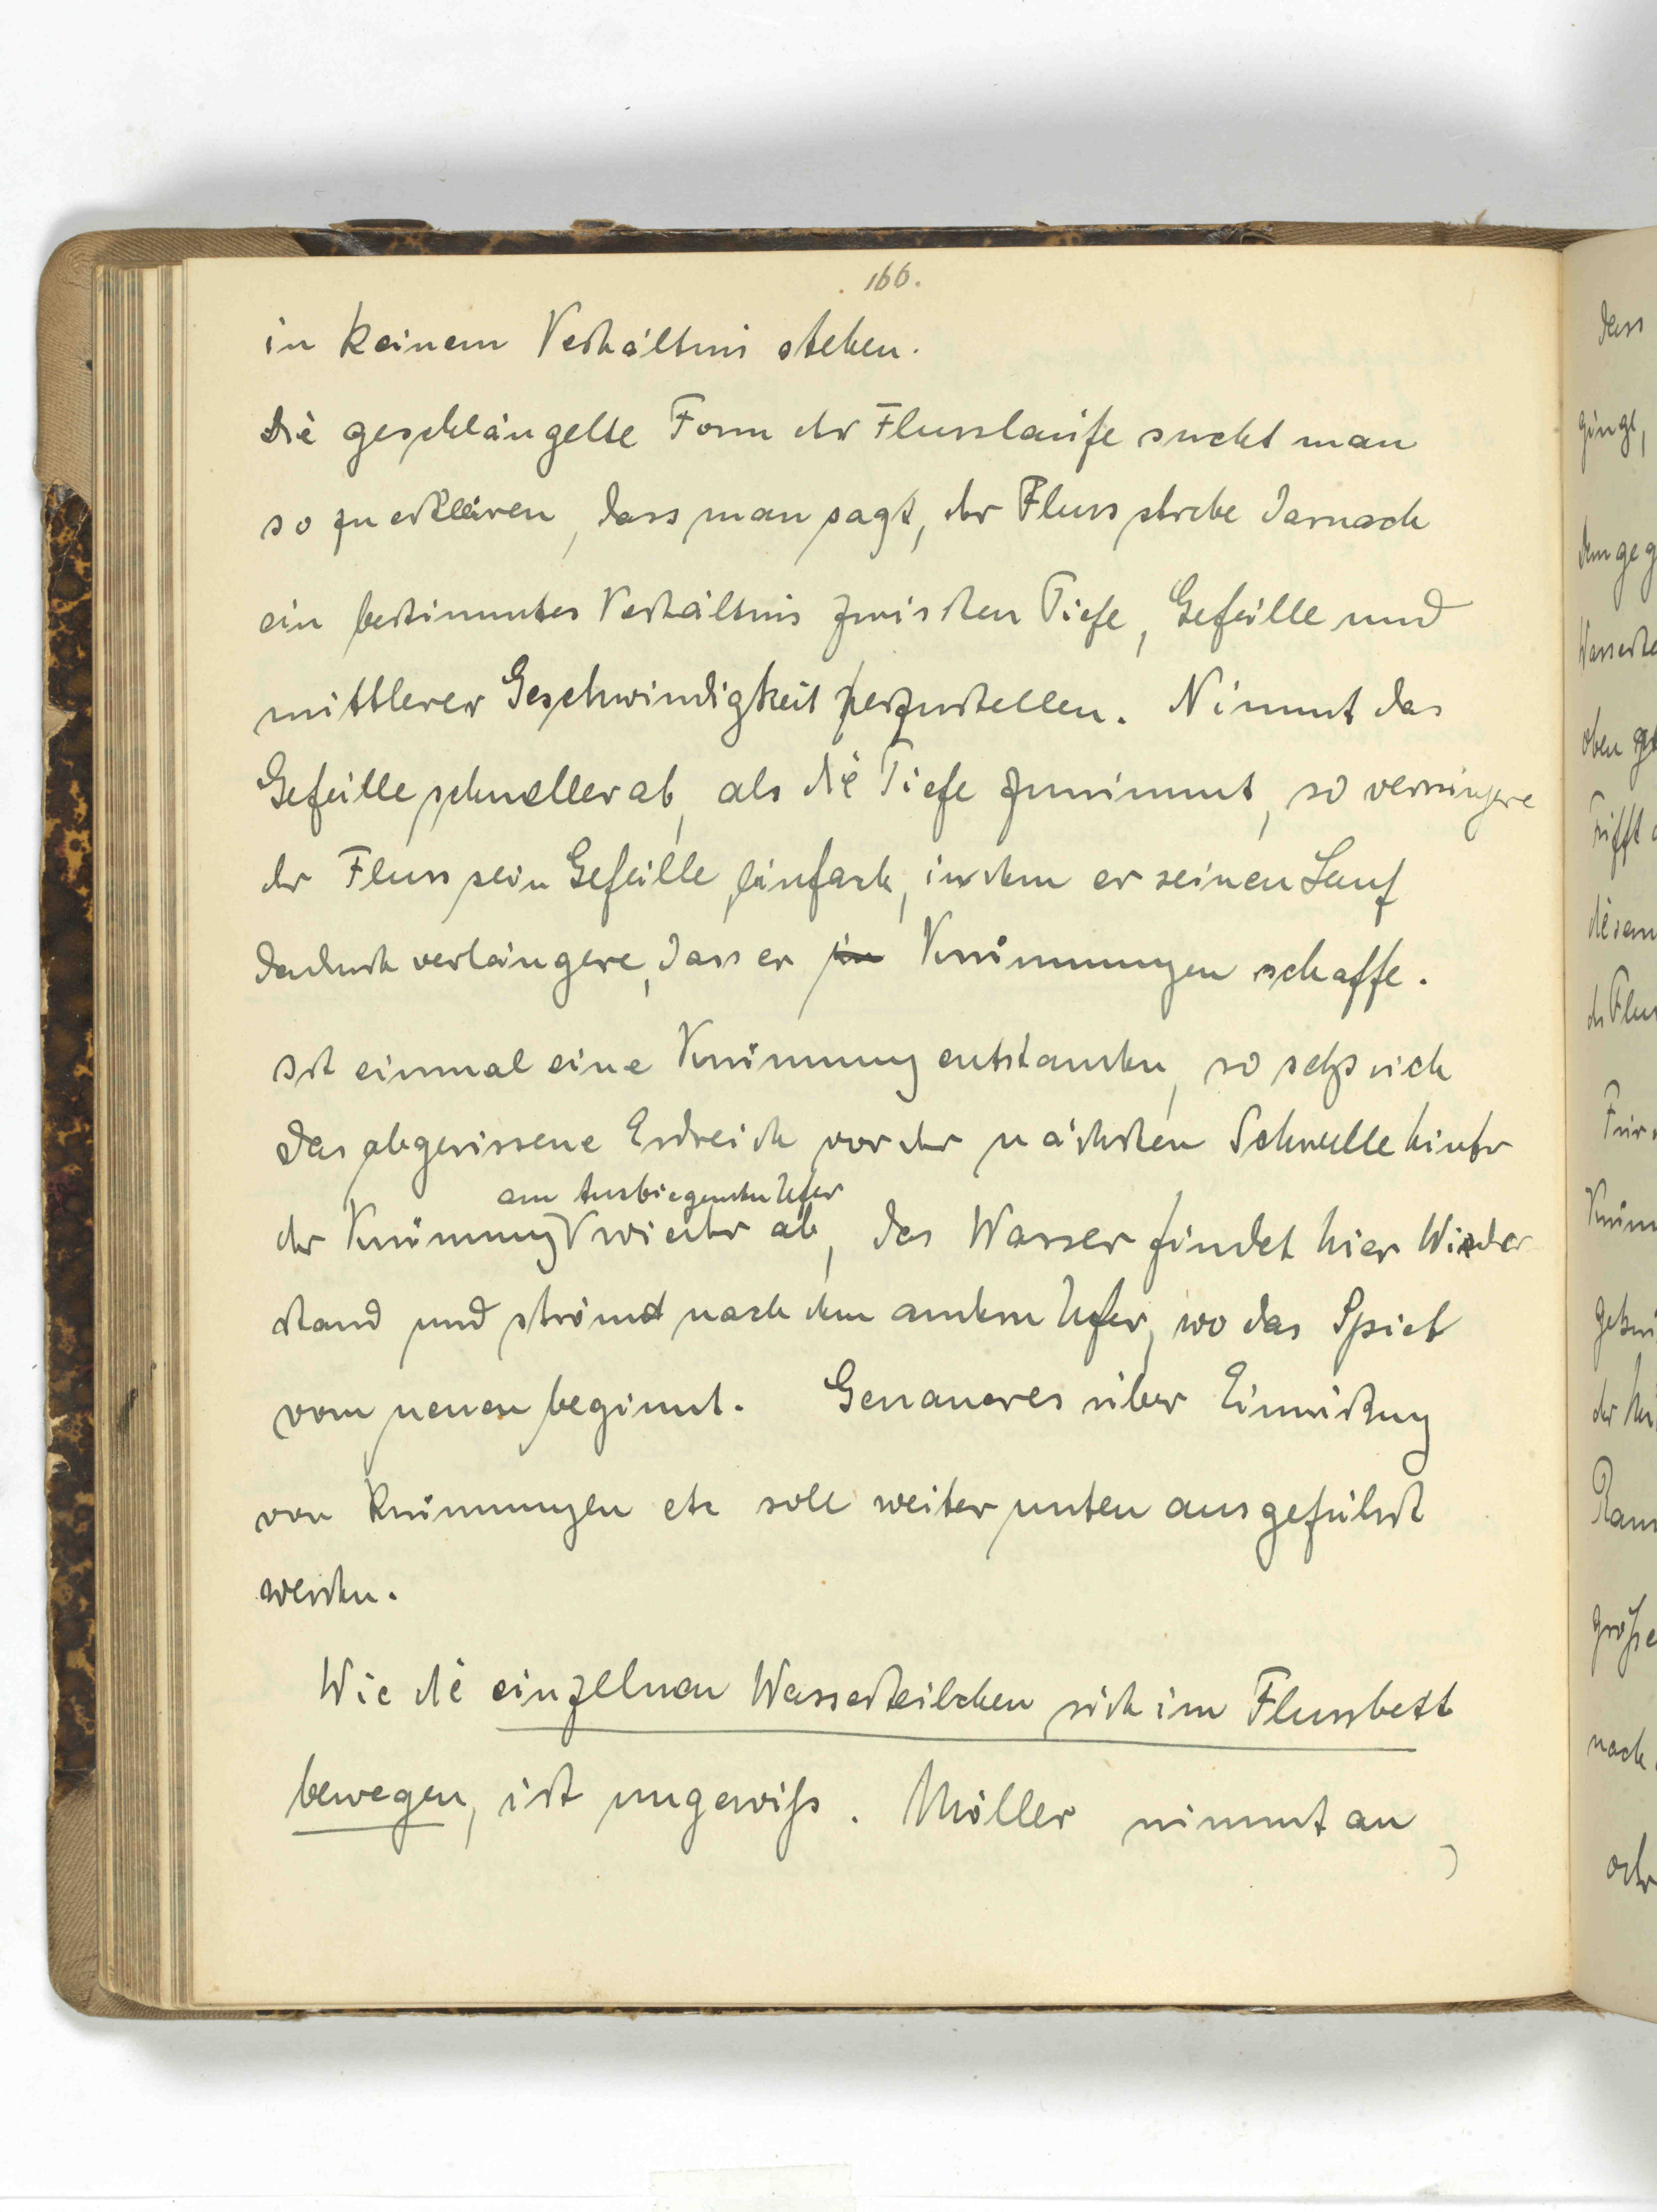 166.
in keinem Verhältnis stehen.
Die geschlängelte Form der Flussläufe sucht man
so zu erklären, dass man sagt, der Fluss strebe darnach
ein bestimmtes Verhältnis zwischen Tiefe, Gefälle und
mittlerer Geschwindigkeit herzustellen. Nimmt das
Gefälle schneller ab, als die Tiefe zunimmt, so verringere
der Fluss sein Gefälle einfach, indem er seinen Lauf
dadurch verlängere, dass er in Krümmungen schaffe.
Ist einmal eine Krümmung entstanden, so setzt sich
das abgerissene Erdreich vor der nächsten Schwelle hinter
am Ausbiegenden Ufer
der Krümmung wieder ab, das Wasser findet hier Wieder
stand und strömt nach dem andern Ufer, wo das Spiel
vom neuen beginnt. Genaueres über Einwirkung
von Krümmungen etc soll weiter unten ausgeführt
werden.
Wie die einzelnen Wasserteilchen sich im Flussbett
bewegen, ist ungewiss. Möller nimmt an,
dass
gingt,
dem geg
Wasserte
oben
Trifft
diesem
der Flus
Für
Krüm
der
Raum
große
nach
oder